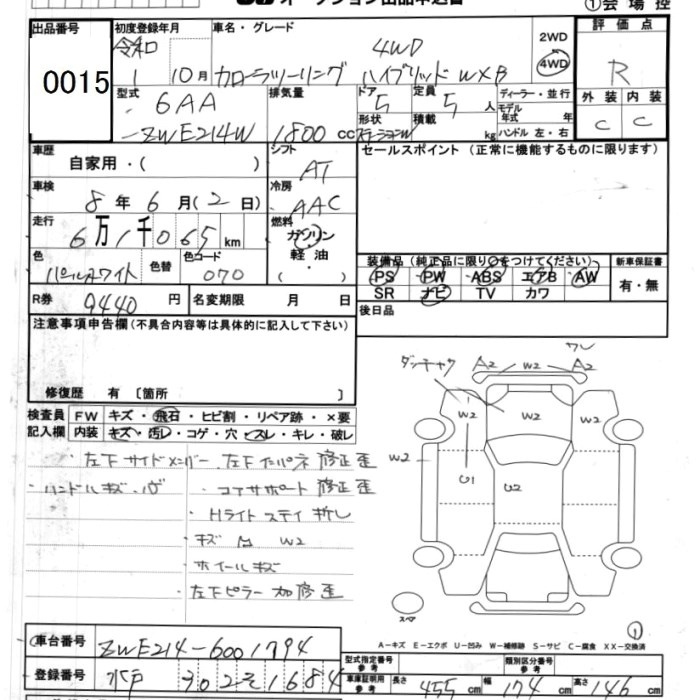 オークション出品申込書 ①会場控
出品番号 0015
初度登録年月 令和 1 10月
車名・グレード 4WD カローラツーリング ハイブリッド WXB
2WD 4WD
評価点 R
外装 C 内装 C
型式 6AA -ZWE214W
排気量 1800 cc
ドア 5 形状 ステーションW
定員 5 人 積載 kg
ディーラー・並行
モデル年式 年
ハンドル 左・右
車歴 自家用・( )
シフト AT
セールスポイント (正常に機能するものに限ります)
車検 8年 6月(2日)
冷房 AAC
走行 6万1千065km
燃料 ガソリン 軽油・( )
色 パールホワイト 色替 色コード 070
装備品 (純正品に限り○をつけてください)
PS PW ABS エアB AW
SR ナビ TV カワ
新車保証書 有・無
R券 9440円
名変期限 月 日
後日品
注意事項申告欄(不具合内容等は具体的に記入して下さい)
修復歴 有 〔箇所 〕
検査員記入欄
FW キズ・飛石・ヒビ割・リペア跡・×要
内装 キズ・汚レ・コゲ・穴・スレ・キレ・破レ
・左下サイドメンバー、左下インパネ 修正歪
・ハンドルキズ、
・コアサポート 修正歪
・Hライト ステイ 折レ
・キズ W2
・ホイールキズ
・左下ピラー 修歪
ワレ
A2 W2 A2
W2 W2 W2
W2
U1 U2
スペア
①
A-キズ E-エクボ U-凹み W-補修跡 S-サビ C-腐食 XX-交換済
車台番号 ZWE214-6001794
登録番号 水戸 302 そ 1684
型式指定番号 参考
類別区分番号 参考
車庫証明用 参考 長さ 455cm 幅 174cm 高さ 146cm